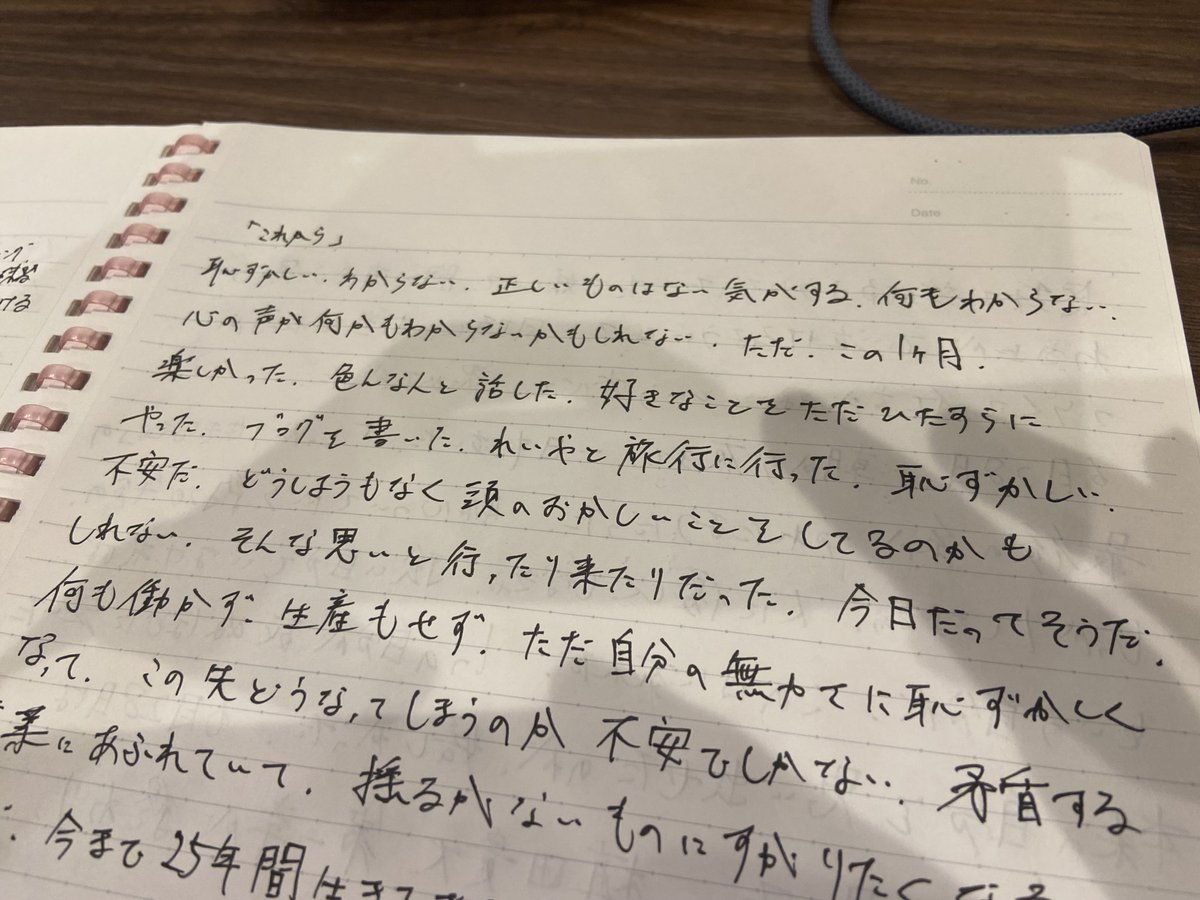 No.
Date
「これから」
恥ずかしい。わからない。正しいものはない気がする。何もわからない。
心の声が何かもわからないかもしれない。ただ、この1ヶ月。
楽しかった。色んな人と話した。好きなことをただひたすらに
やった。ブログを書いた。れいやと旅行に行った。恥ずかしい。
不安だ。どうしようもなく頭のおかしいことをしてるのかも
しれない。そんな思いと行ったり来たりだった。今日だってそうだ。
何も働かず、生産もせず、ただ自分の無力てに恥ずかしく
なって、この先どうなってしまうのか不安でしかない。矛盾する
葉にあふれていて、揺るがないものにすがりたくなる
今まで25年間生きて